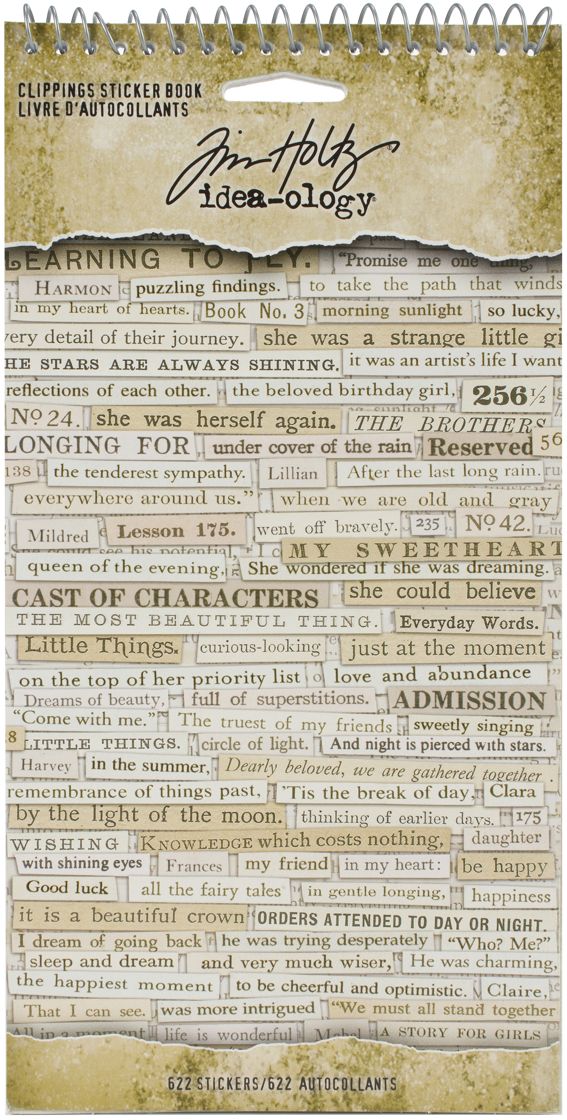 CLIPPINGS STICKER BOOK
LIVRE D'AUTOCOLLANTS
Tim Holtz
idea-ology
LEARNING TO FLY. "Promise me one thing,
HARMON puzzling findings. to take the path that winds
in my heart of hearts. Book No. 3 morning sunlight so lucky,
very detail of their journey. she was a strange little gi
HE STARS ARE ALWAYS SHINING. it was an artist's life I want
reflections of each other. the beloved birthday girl, 256 1/2
No 24. she was herself again. THE BROTHERS
LONGING FOR under cover of the rain Reserved 56
138 the tenderest sympathy. Lillian After the last long rain.
everywhere around us." when we are old and gray
Mildred Lesson 175. went off bravely. 235 No 42.
MY SWEETHEART
queen of the evening, She wondered if she was dreaming.
CAST OF CHARACTERS she could believe
THE MOST BEAUTIFUL THING. Everyday Words.
Little Things. curious-looking just at the moment
on the top of her priority list love and abundance
Dreams of beauty, full of superstitions. ADMISSION
"Come with me." The truest of my friends sweetly singing
8 LITTLE THINGS. circle of light. And night is pierced with stars.
Harvey in the summer, Dearly beloved, we are gathered together .
remembrance of things past, 'Tis the break of day. Clara
by the light of the moon. thinking of earlier days. 175
WISHING KNOWLEDGE which costs nothing, daughter
with shining eyes Frances my friend in my heart: be happy
Good luck all the fairy tales in gentle longing, happiness
it is a beautiful crown ORDERS ATTENDED TO DAY OR NIGHT.
I dream of going back he was trying desperately "Who? Me?"
sleep and dream and very much wiser, He was charming,
the happiest moment to be cheerful and optimistic. Claire,
That I can see. was more intrigued "We must all stand together
All in a moment life is wonderful Mabel A STORY FOR GIRLS
622 STICKERS/622 AUTOCOLLANTS